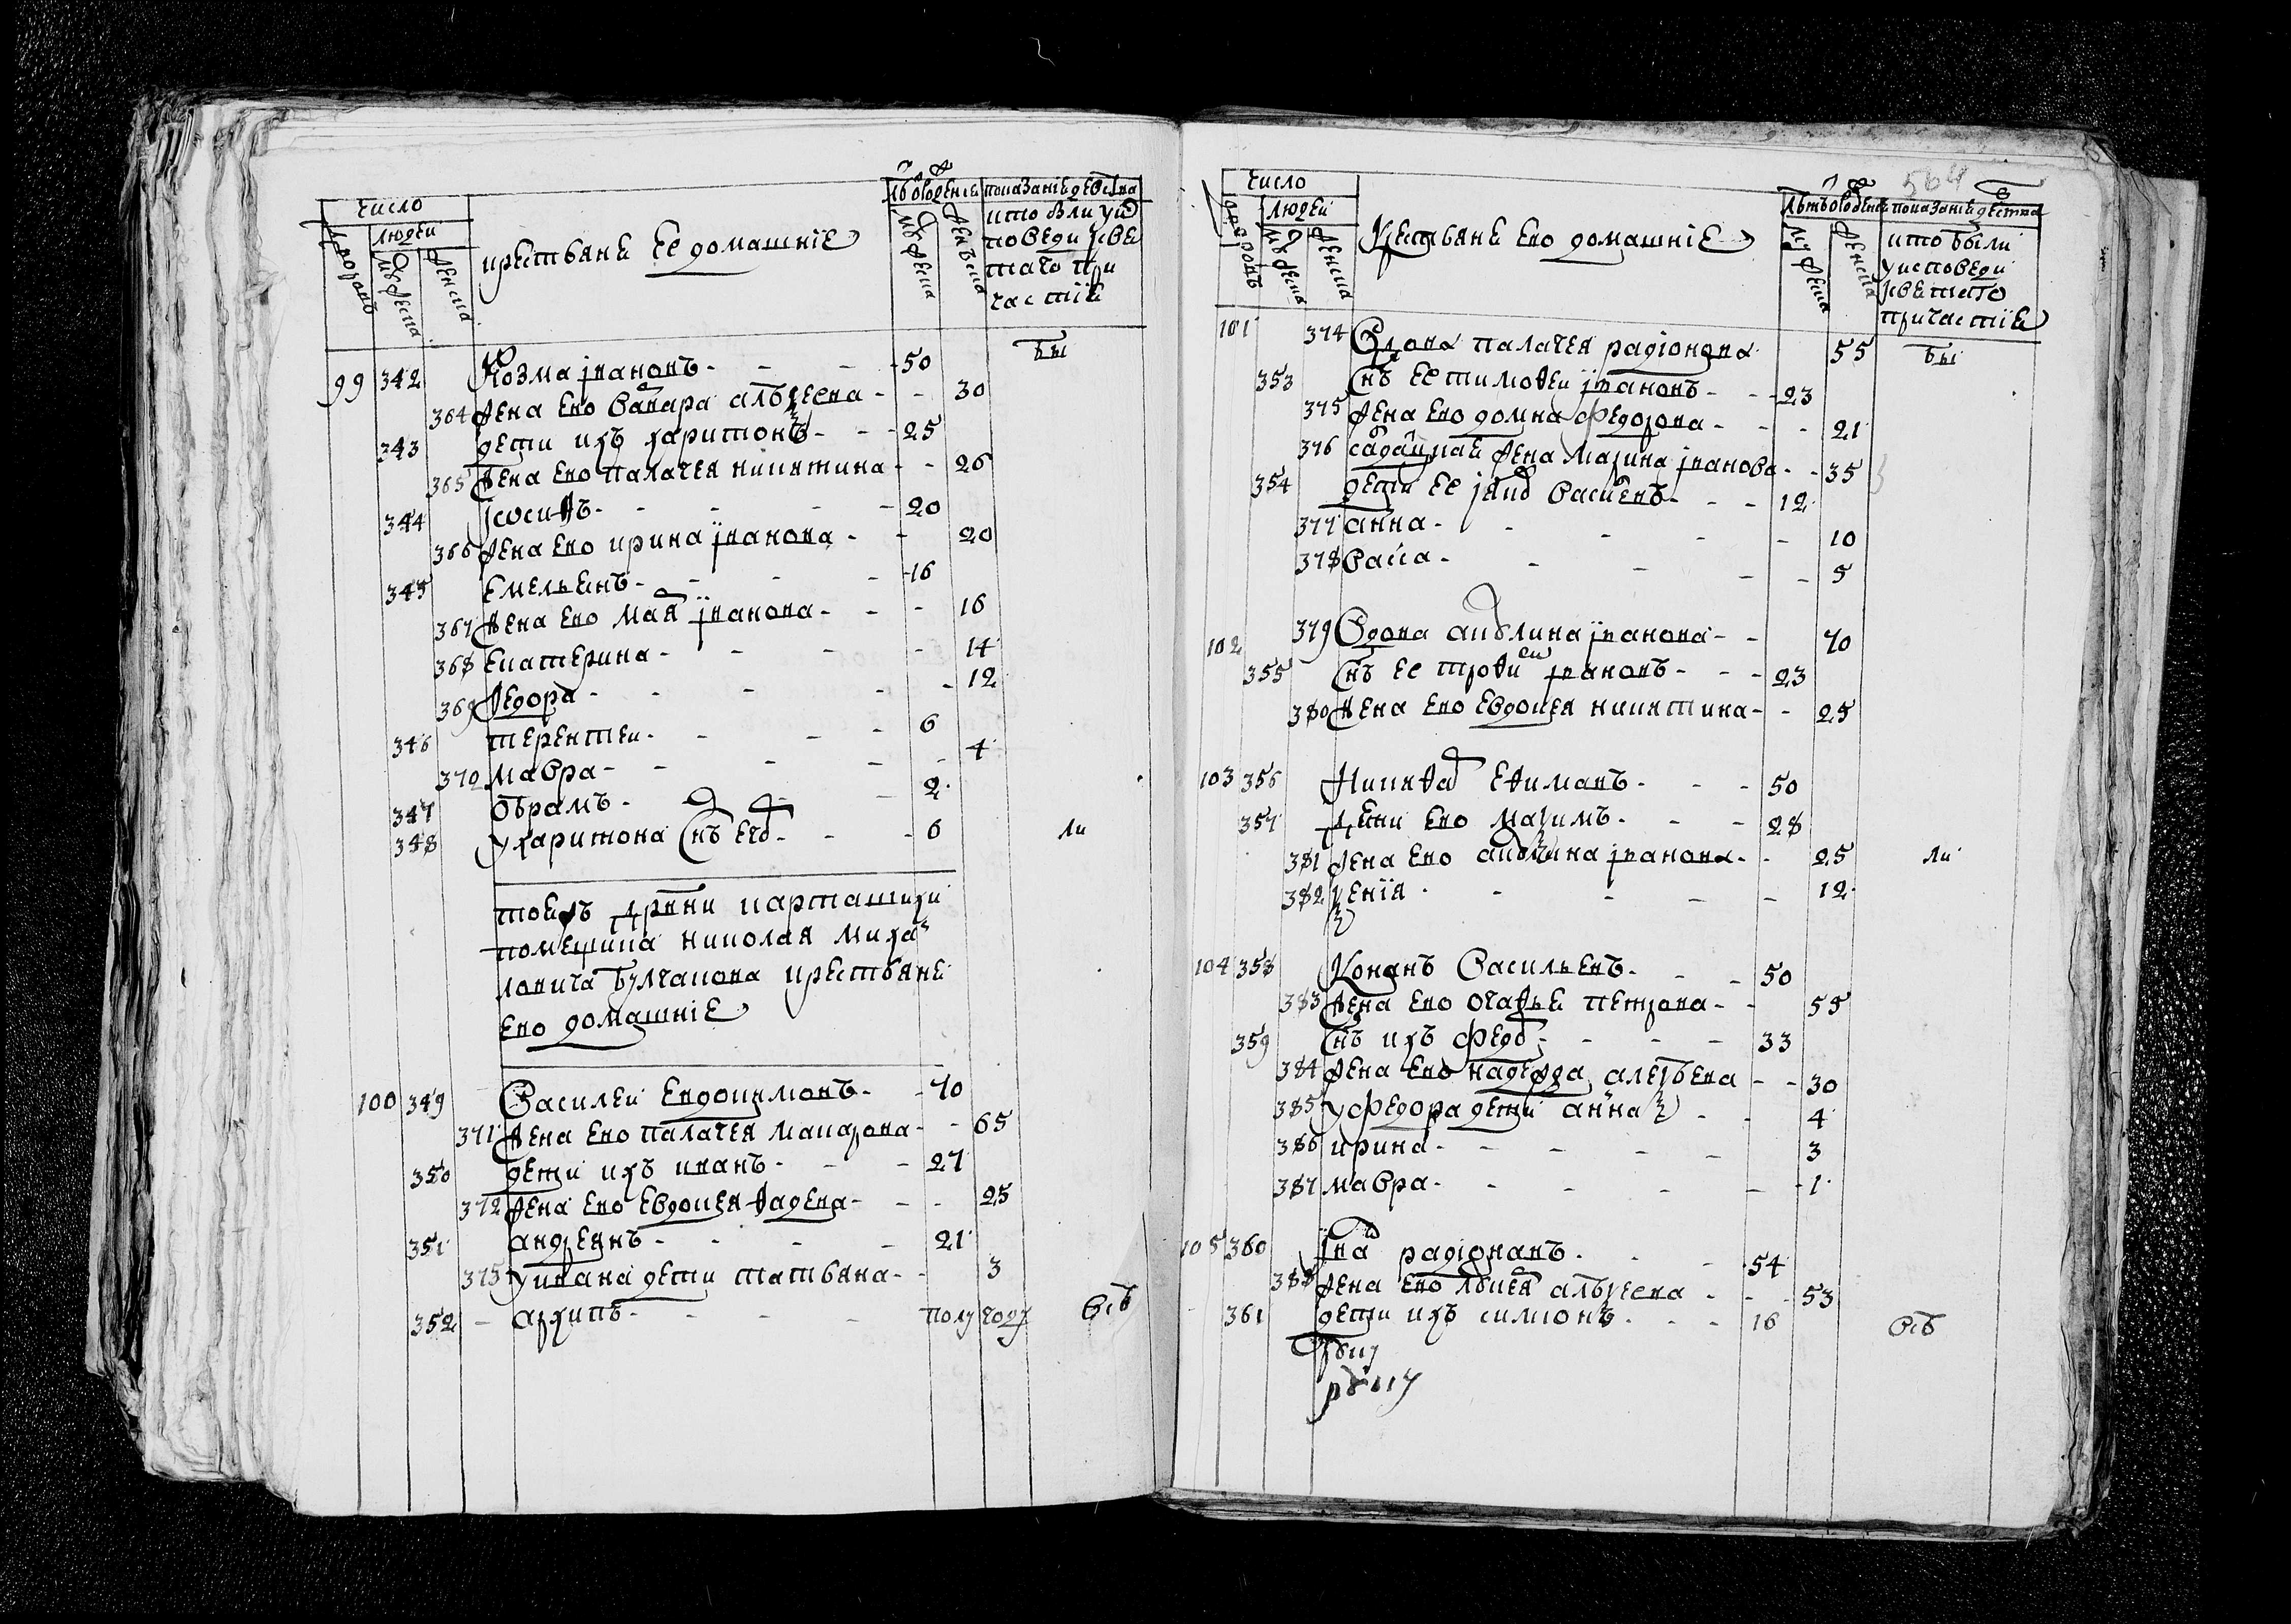 число
людей
дворовъ
мужеска
женска
крестьянѣ ее домашнiе
женска
мужеска
показанiе действа
кто были у ис
поведи и све
таго при
частiя
99 342 Козма ивановъ - 50
бы
364 жена ево Варвара алѣксеева - 30
343 дети ихъ харитонъ - 25
365 жена ево палагея никитина - 26
344 иосифъ - 20
366 жена ево ирина ивановна - 20
345 Емельянъ - 16
367 жена ево мария иванова - 16
368 Екатерина - 14
369 Федора - 12
346 терентей - 6
370 мавра - 4
347 обрамъ - 2
348 у харитона снъ его - 6
ли
тоежъ дрвни карташихи
помещика николая миха
ловича булгакова крестьянѣ
ево домашнiе
100 349 Василей Евдокимовъ - 70
371 жена ево палагея макарова - 65
350 дети ихъ иванъ - 27
372 жена ево Евдокея фадеева - 25
351 андреянъ - 21
373 у ивана дети татьяна - 3
352 архипъ - полу году
всѣ
564
число
людей
дворовъ
мужеска
женска
Крестьянѣ ево домашнiе
мужеска
женска
показанiе действа
кто были
у исповеди
и светаго
причастiя
101 374 Вдова палагея радiонова 55
бы
353 снъ ее тимофей ивановъ - 23
375 жена ево домна федорова - 21
376 салдацкая жена марина иванова - 35
354 дети ее яковъ Васильевъ - 12
377 анна - 10
378 Васса - 5
102 379 Вдова акулина иванова - 70
355 снъ ее трофимъ ивановъ - 23
380 жена ево Евдокея никитина - 25
103 356 Никифоръ Ефимовъ - 50
357 дети ево маѯимъ - 28
381 жена ево акулина иванова - 25
ли
382 ѯенiя - 12
104 358 Кононъ Васильевъ - 50
383 жена ево огафья петрова - 55
359 снъ ихъ федоръ - 33
384 жена ево надежда алеѯеева - 30
385 у федора дети анна 2 - 4
386 ирина - 3
387 мавра - 1
105 360 Иванъ радiоновъ - 54
388 жена ево лукея алѣксеева - 53
361 дети ихъ симионъ - 16
всѣ
руку